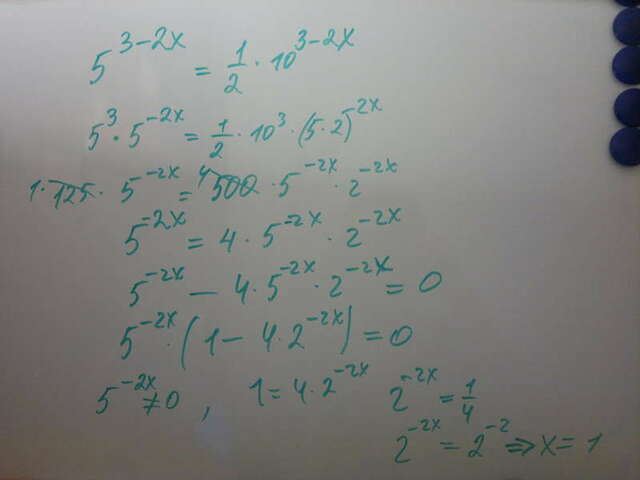 5^{3-2x} = \frac{1}{2} · 10^{3-2x}
5^3 · 5^{-2x} = \frac{1}{2} · 10^3 · (5·2)^{-2x}
1· 125 · 5^{-2x} = 4 500 · 5^{-2x} · 2^{-2x}
5^{-2x} = 4 · 5^{-2x} · 2^{-2x}
5^{-2x} - 4 · 5^{-2x} · 2^{-2x} = 0
5^{-2x} · (1 - 4 · 2^{-2x}) = 0
5^{-2x} ≠ 0 , 1 = 4 · 2^{-2x} 2^{-2x} = \frac{1}{4}
2^{-2x} = 2^{-2} ⇒ x = 1